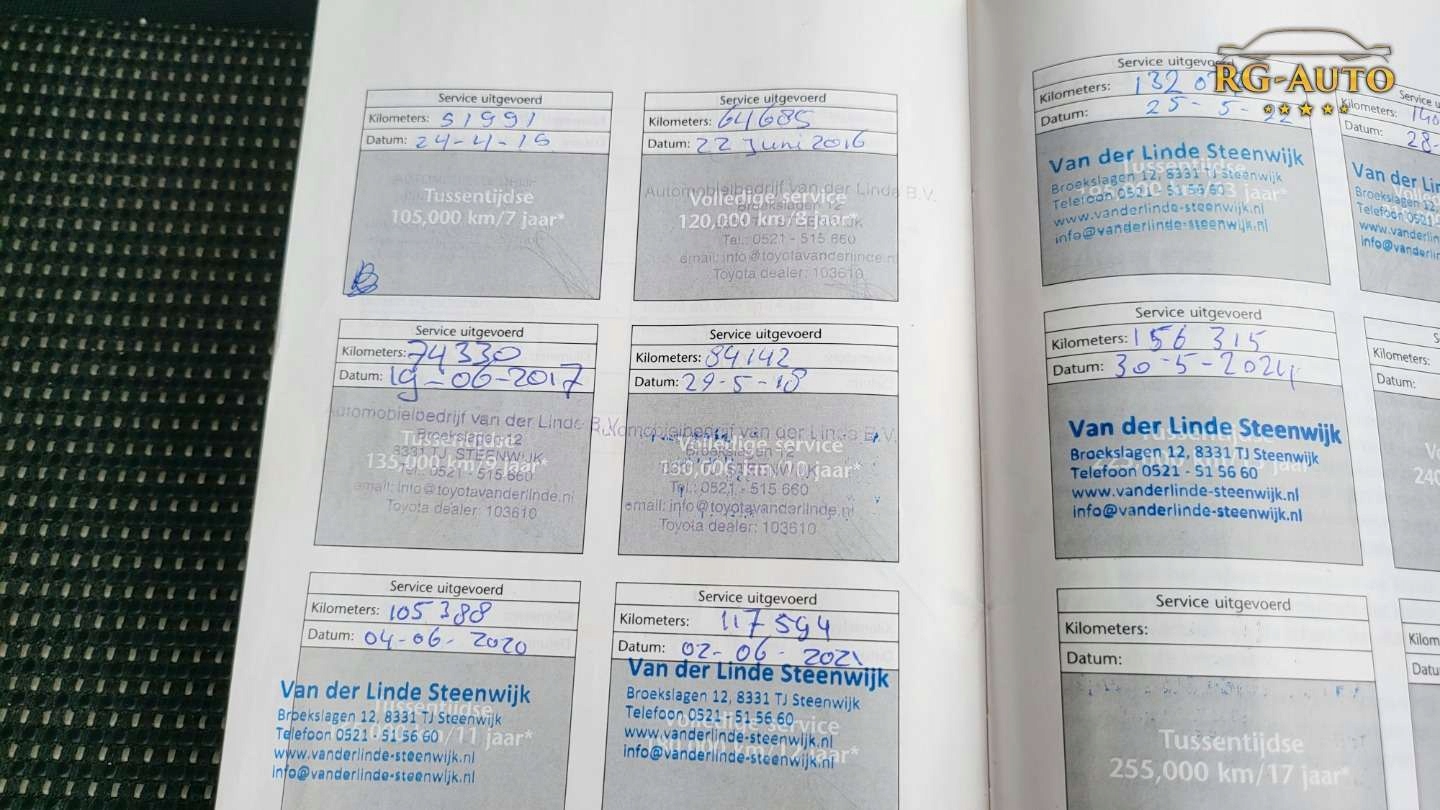 RG-AUTO
Service uitgevoerd
Kilometers: 51991
Datum: 24-4-15
Tussentijdse
105,000 km/7 jaar*
Service uitgevoerd
Kilometers: 64685
Datum: 22 Juni 2016
Volledige service
120,000 km/8 jaar*
Automobielbedrijf van der Linde B.V.
Broekslagen 12
Tel.: 0521 - 515 660
email: info@toyotavanderlinde.nl
Toyota dealer: 103610
Service uitgevoerd
Kilometers: 74330
Datum: 19-06-2017
Tussentijdse
135,000 km/9 jaar*
Automobielbedrijf van der Linde B.V.
Broekslagen 12
8331 TJ STEENWIJK
Tel.: 0521 - 515 660
email: info@toyotavanderlinde.nl
Toyota dealer: 103610
Service uitgevoerd
Kilometers: 84142
Datum: 29-5-18
Volledige service
km/10 jaar*
Automobielbedrijf van der Linde B.V.
Broekslagen 12
8331 TJ STEENWIJK
Tel.: 0521 - 515 660
email: info@toyotavanderlinde.nl
Toyota dealer: 103610
Service uitgevoerd
Kilometers: 105388
Datum: 04-06-2020
Tussentijdse
km/11 jaar*
Van der Linde Steenwijk
Broekslagen 12, 8331 TJ Steenwijk
Telefoon 0521 - 51 56 60
www.vanderlinde-steenwijk.nl
info@vanderlinde-steenwijk.nl
Service uitgevoerd
Kilometers: 117594
Datum: 02-06-2021
Volledige service
Van der Linde Steenwijk
Broekslagen 12, 8331 TJ Steenwijk
Telefoon 0521 - 51 56 60
www.vanderlinde-steenwijk.nl
info@vanderlinde-steenwijk.nl
Service uitgevoerd
Kilometers: 132
Datum: 25-5-22
Tussentijdse
jaar*
Van der Linde Steenwijk
Broekslagen 12, 8331 TJ Steenwijk
Telefoon 0521 - 51 56 60
www.vanderlinde-steenwijk.nl
info@vanderlinde-steenwijk.nl
Service
Kilometers: 140
Datum: 28-
Van der Lin
Broekslagen 12,
Telefoon 0521
www.vanderlin
info@vanderl
Service uitgevoerd
Kilometers: 156 315
Datum: 30-5-2024
Van der Linde Steenwijk
Broekslagen 12, 8331 TJ Steenwijk
Telefoon 0521 - 51 56 60
www.vanderlinde-steenwijk.nl
info@vanderlinde-steenwijk.nl
Kilometers:
Datum:
240
Service uitgevoerd
Kilometers:
Datum:
Tussentijdse
255,000 km/17 jaar*
Kilom
Datu